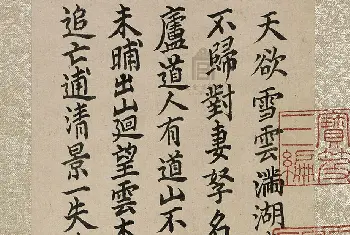 天欲雪雲滿湖
不歸對妻孥名
廬道人有道山不
未晡出山迴望雲木
追亡逋清景一失
寶笈
三編